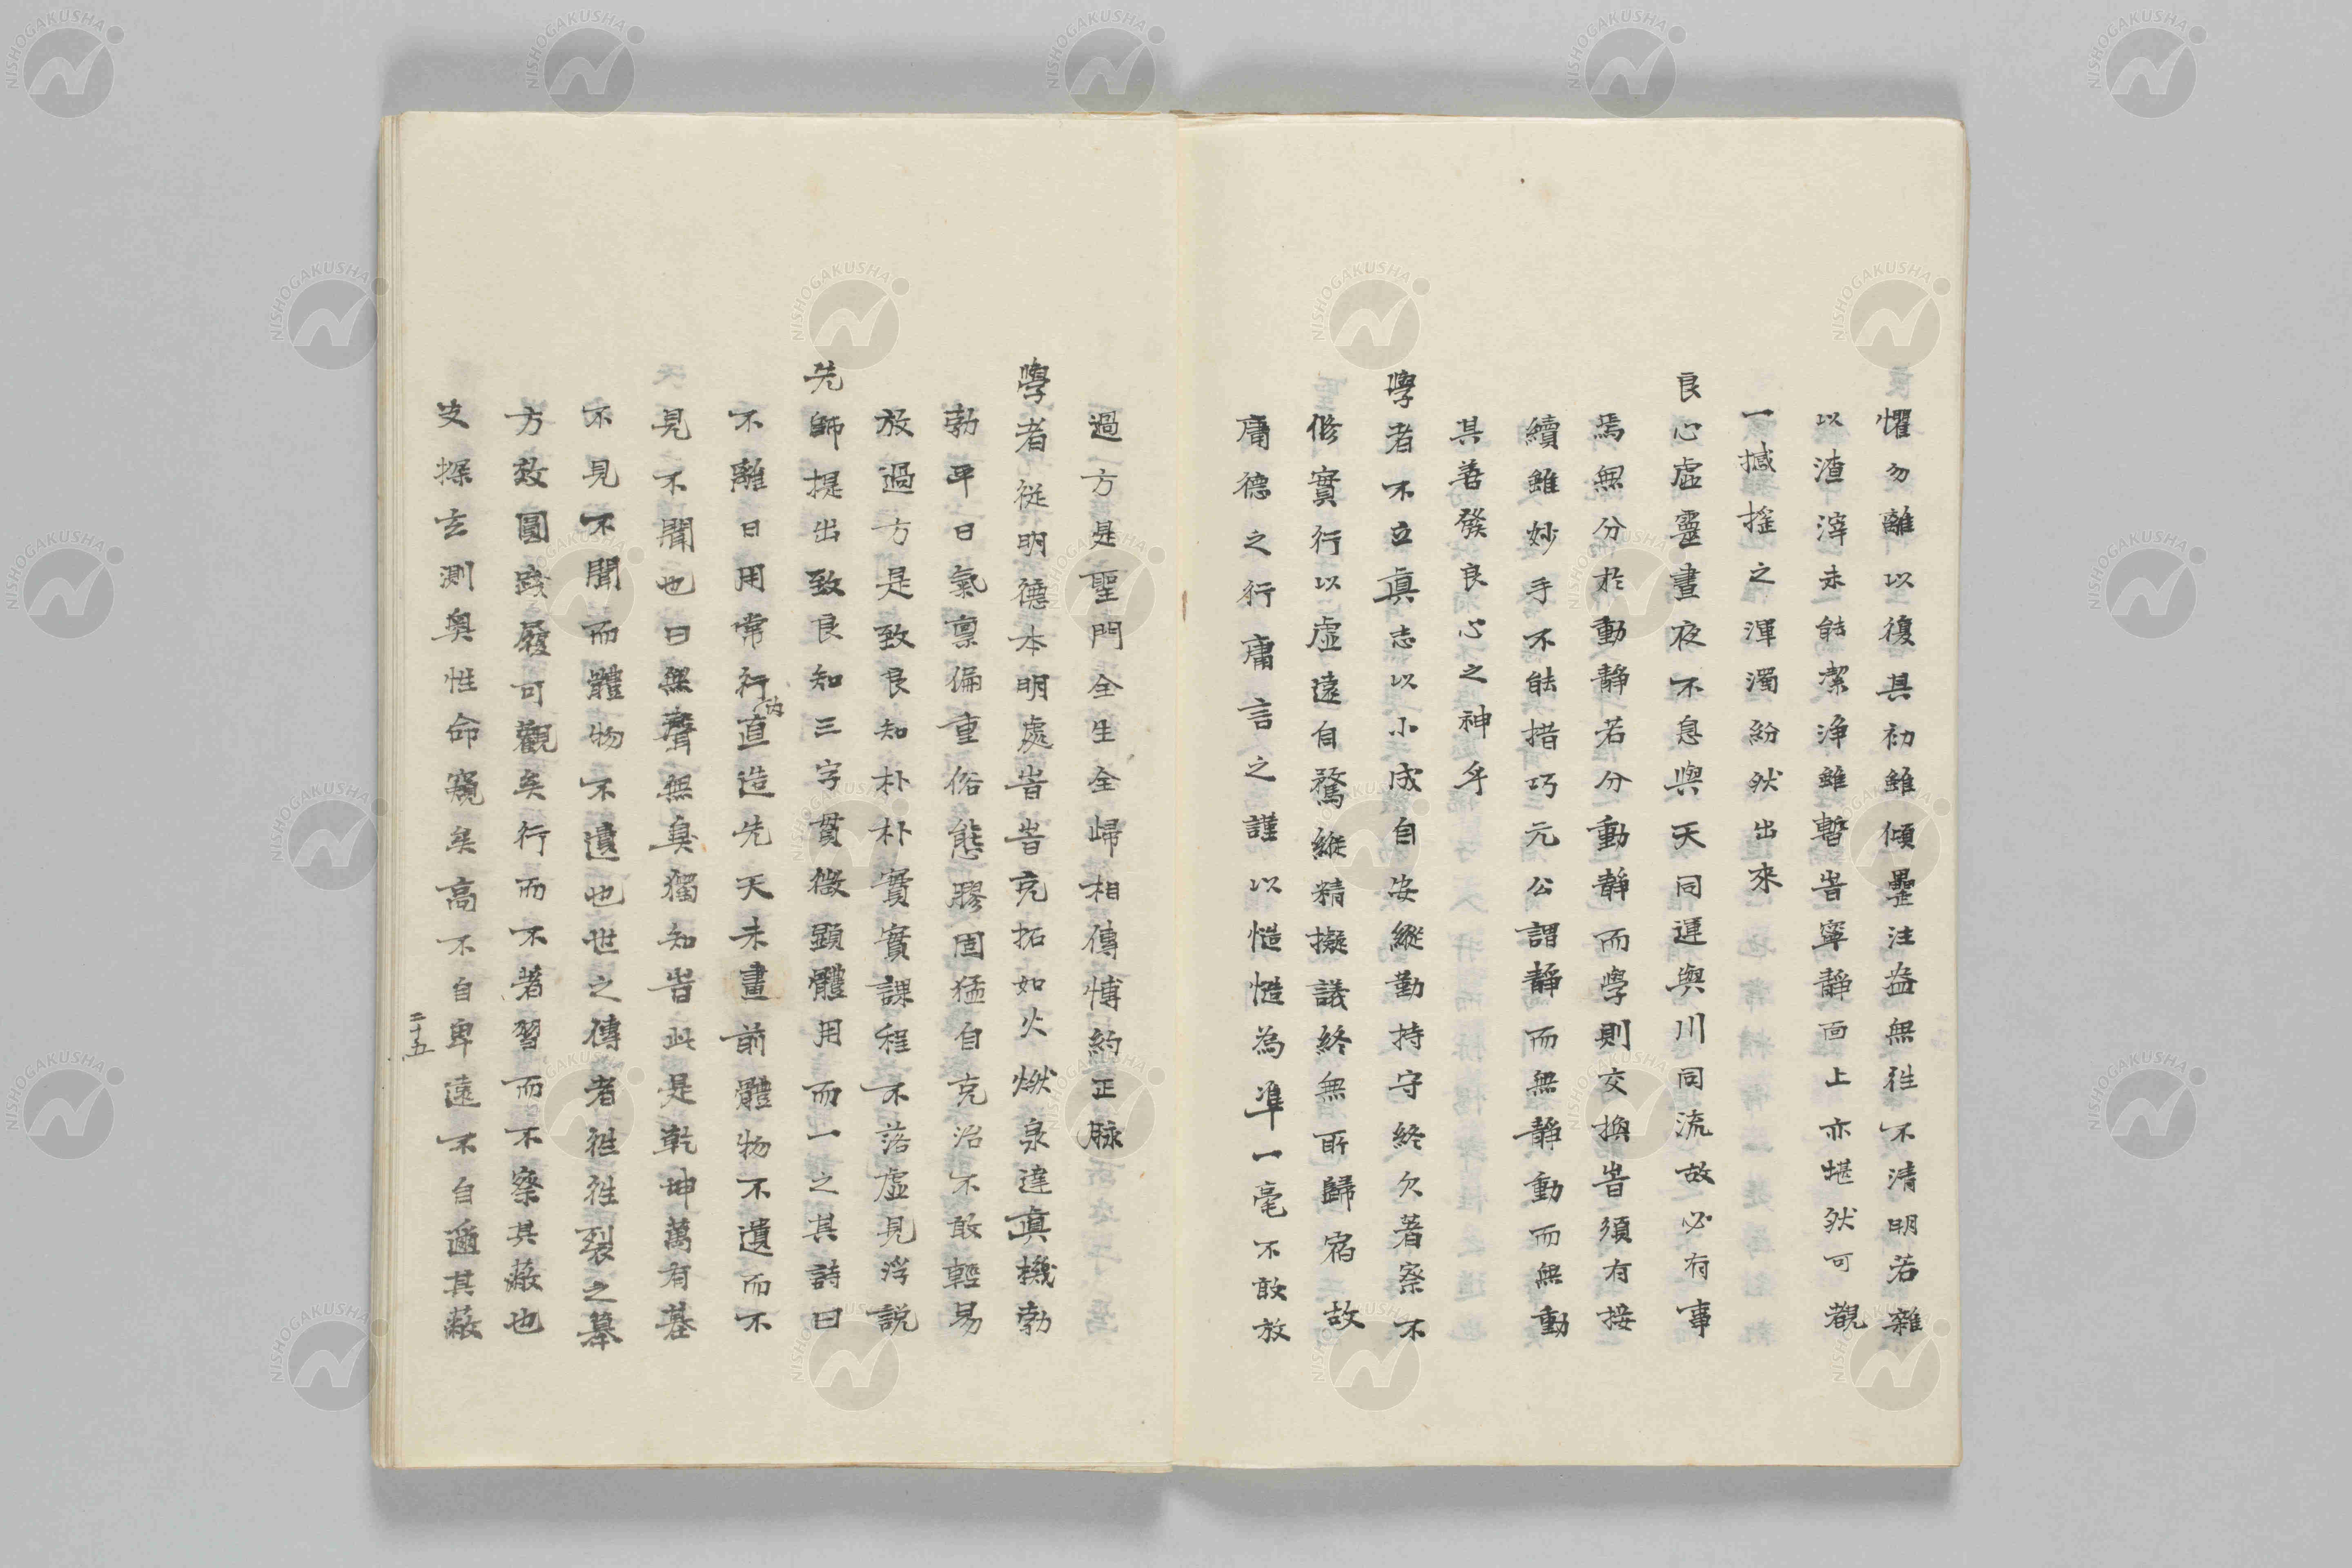 懼勿離以復其初雖傾罍注盎無往不清明若雜
以渣滓未能潔淨雖暫時寧靜面上亦堪然可觀
一撼搖之渾濁紛然出來
良心虛靈晝夜不息與天同運與川同流故必有事
焉無分於動靜若分動靜而學則交換時須有接
續雖妙手不能措巧元公謂靜而無靜動而無動
其善發良心之神乎
學者不立真志以小成自安縱勤持守終欠著察不
修實行以虛遠自騖縱精擬議終無所歸宿故
庸德之行庸言之謹以慥慥為準一毫不敢放
過方是聖門全生全歸相傳博約正脉
學者從明德本明處時時充拓如火燃泉達真機勃
勃平日氣稟偏重俗態膠固猛自克治不敢輕易
放過方是致良知朴朴實實課程不落虛見浮說
先師提出致良知三字貫微顯體用而一之其詩曰
不離日用常行内直造先天未畫前體物不遺而不
見不聞也曰無聲無臭獨知時此是乾坤萬有基
不見不聞而體物不遺也世之傳者往往裂之摹
方效圓踐履可觀矣行而不著習而不察其蔽也
支探玄測奧性命窺矣高不自卑遠不自邇其蔽
二十五
NISHOGAKUSHA